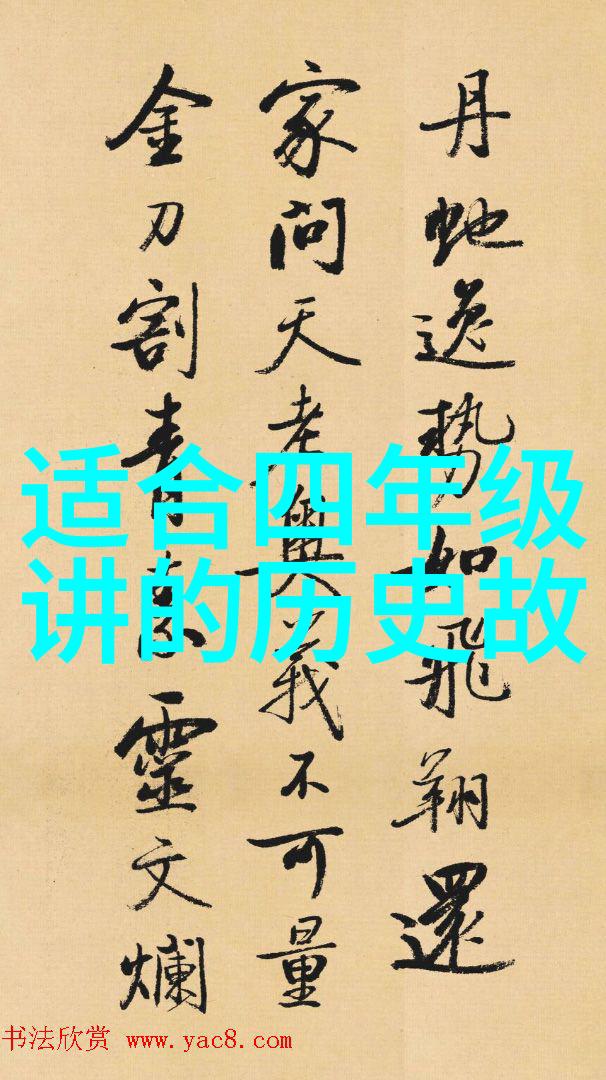 丹虵逸勢如飛翔還
家問天老奧義不可量
金刀割青素靈文爛
适合四年级
讲的历史故
书法欣赏 www.yac8.com